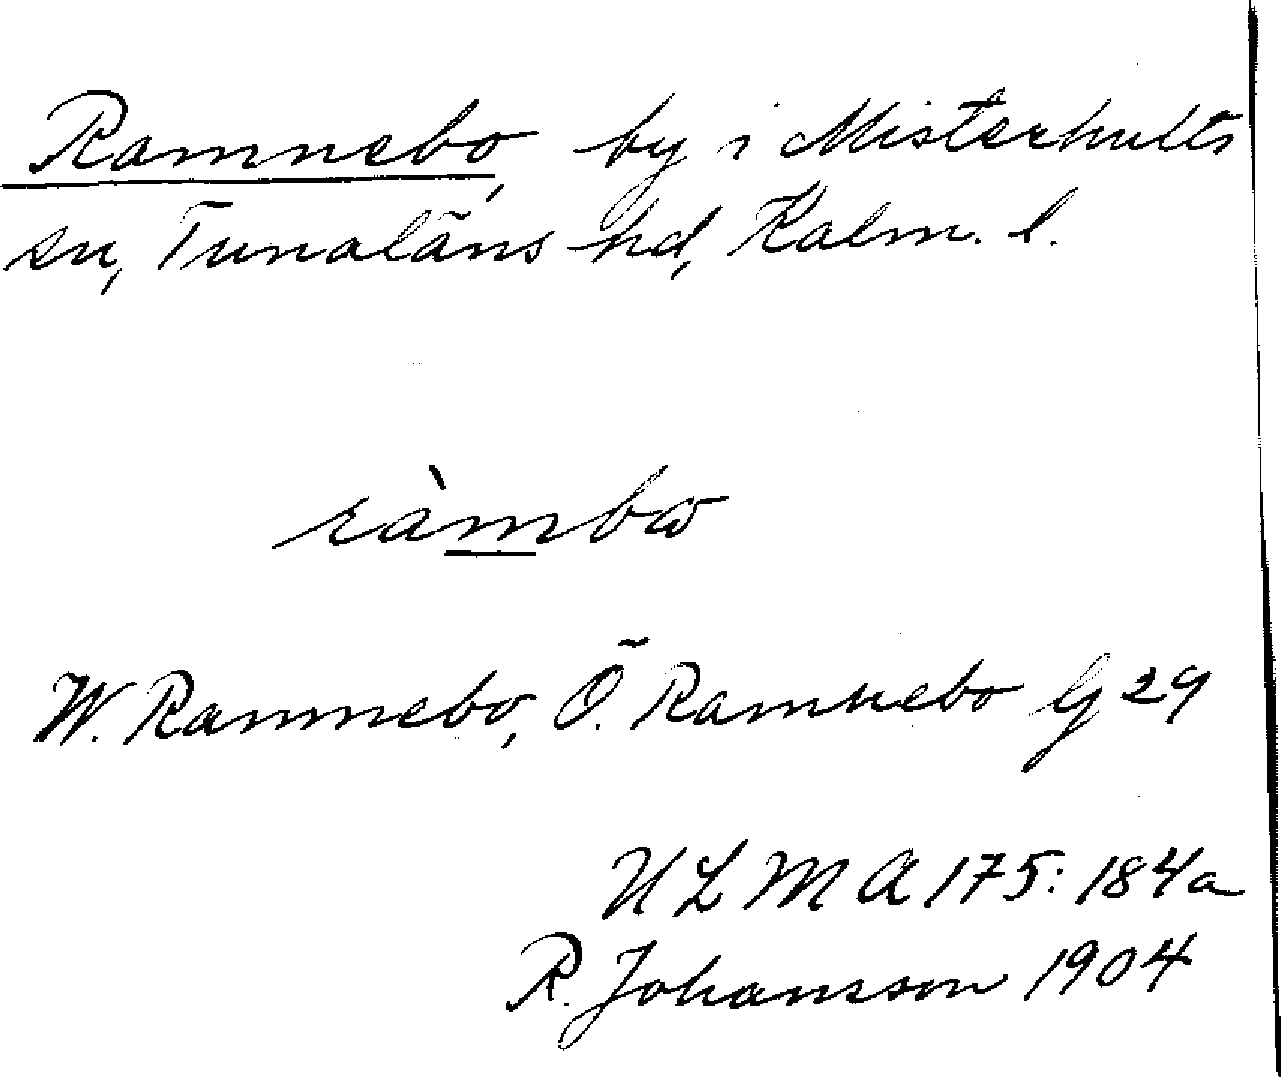 Ramnebo, by i Misterhults
sn, Tunaläns hd, Kalm. l.
ràmbω
W. Ramnebo, Ö. Ramnebo G 29
ULMA 175:184a
R. Johansson 1904